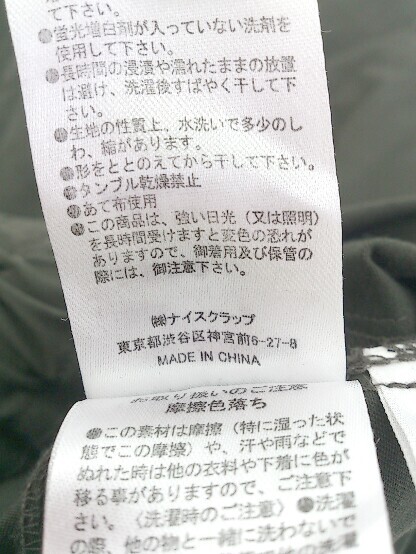 て下さい。
●蛍光増白剤が入っていない洗剤を
使用して下さい。
●長時間の浸漬や濡れたままの放置
は避け、洗濯後すばやく干して下
さい。
●生地の性質上、水洗いで多少のし
わ、縮があります。
●形をととのえてから干して下さい。
●タンブル乾燥禁止
●あて布使用
●この商品は、強い日光(又は照明)
を長時間受けますと変色の恐れが
ありますので、御着用及び保管の
際には、御注意下さい。
㈱ナイスクラップ
東京都渋谷区神宮前6-27-8
MADE IN CHINA
お取り扱いのご注意
摩擦色落ち
●この素材は摩擦(特に湿った状
態でこの摩擦)や、汗や雨などで
ぬれた時は他の衣料や下着に色が
移る事がありますので、ご注意下
さい。〈洗濯時のご注意〉●洗濯
の際、他の物と一緒に洗わないで